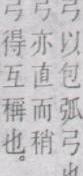 弓以包弧弓也
弓亦直而稍
得互稱也。